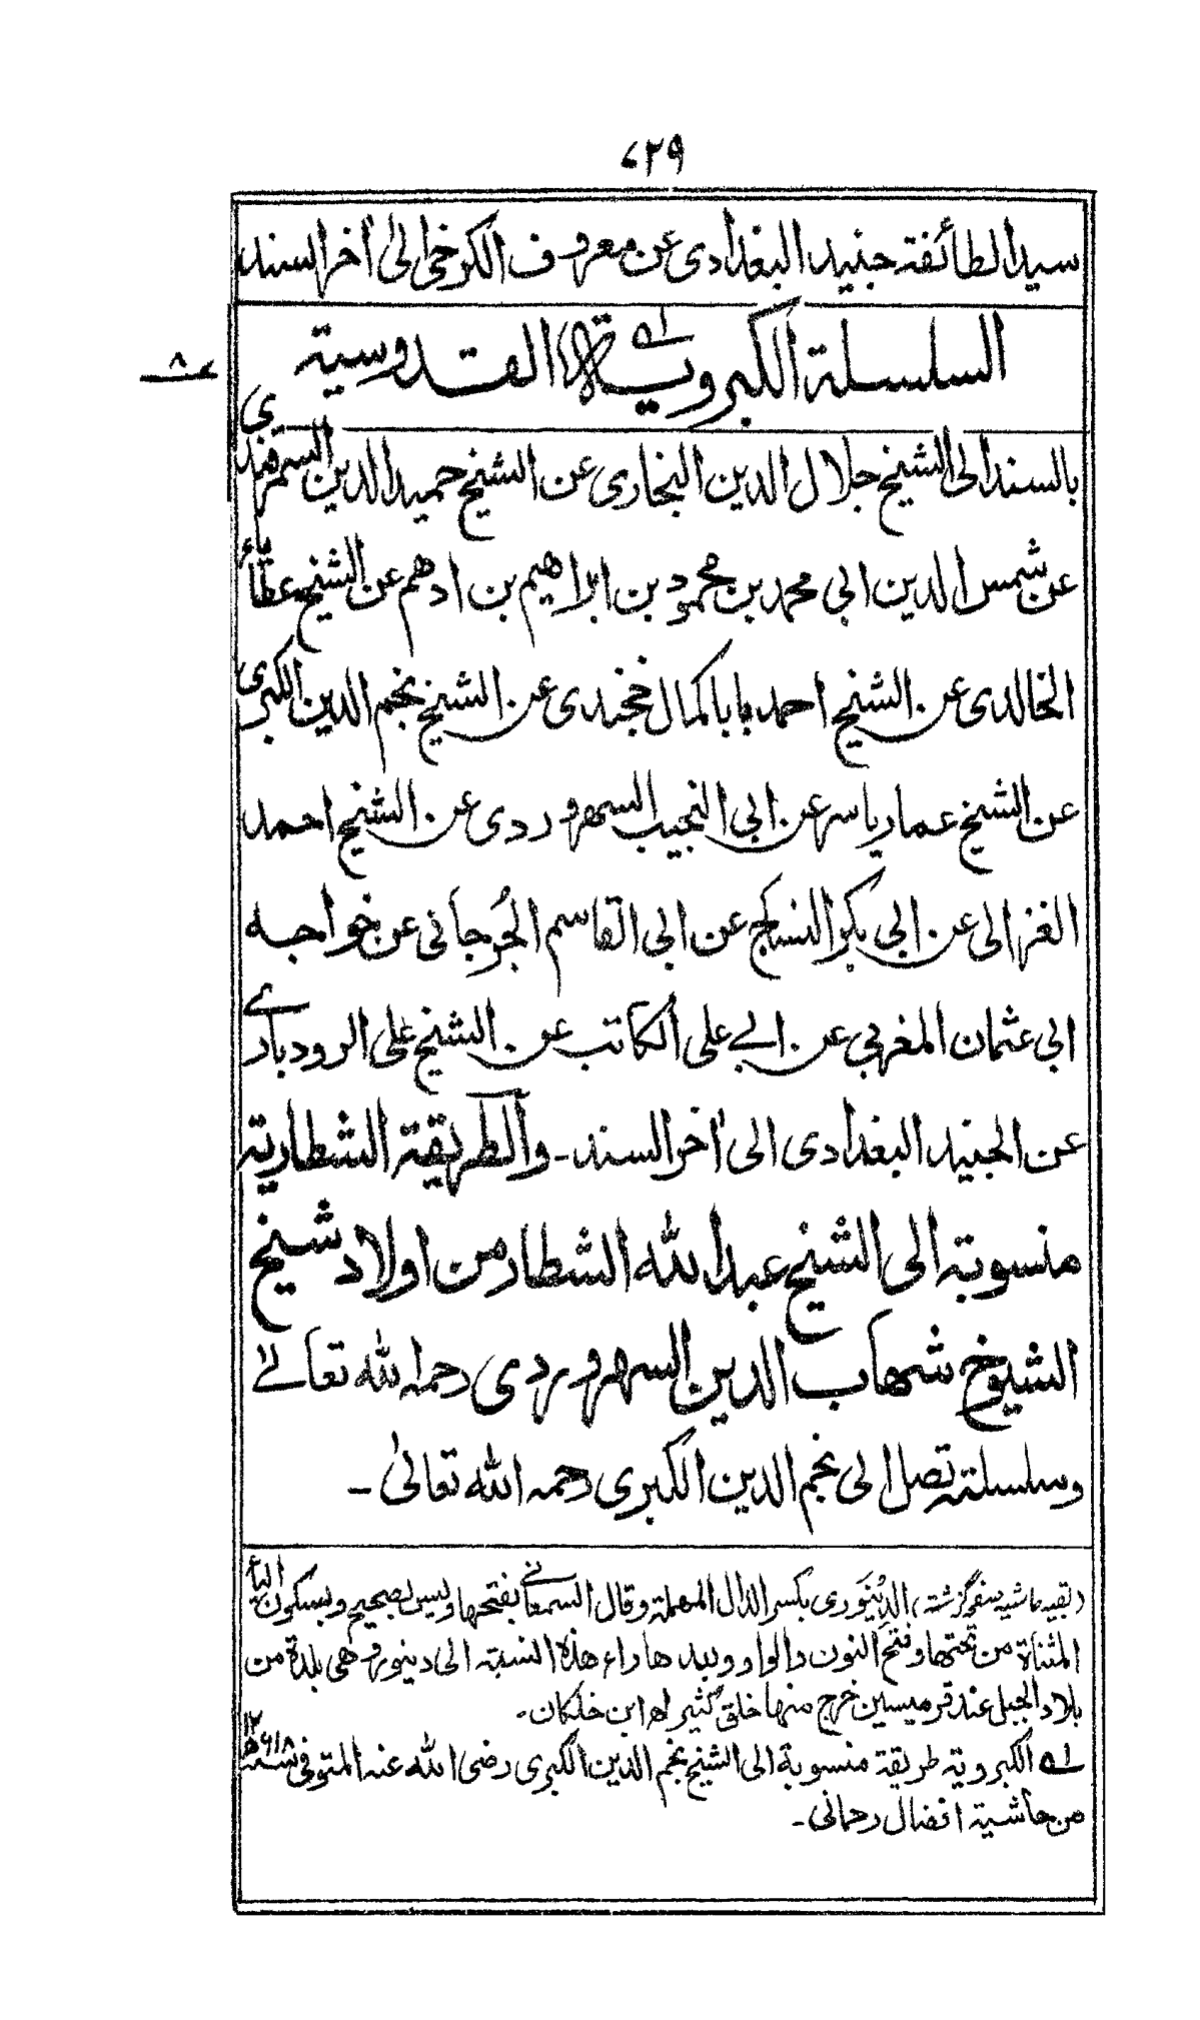 ۷۲۹
سید الطائفۃ جنید البغدادی عن معروف الکرخی الیٰ اٰخر السند
السلسلۃ الکبرویۃ القدوسیۃ
۸
بالسند الی الشیخ جلال الدین البخاری عن الشیخ حمید الدین السمرقندی
عن شمس الدین ابی محمد بن محمود بن ابراھیم بن ادھم عن الشیخ عطایاء
الخالدی عن الشیخ احمد بابا کمال خجندی عن الشیخ نجم الدین الکبری
عن الشیخ عمار یاسر عن ابی النجیب السھروردی عن الشیخ احمد
الغزالی عن ابی بکر النساج عن ابی القاسم الجُرجانی عن خواجہ
ابی عثمان المغربی عن ابی علی الکاتب عن الشیخ علی الرودباری
عن الجنید البغدادی الی اٰخر السند۔ والطریقۃ الشطاریۃ
منسوبۃ الی الشیخ عبد اللہ الشطار من اولاد شیخ
الشیوخ شھاب الدین السھروردی رحمہ اللہ تعالےٰ
وسلسلتہ تصل الی نجم الدین الکبری رحمہ اللہ تعالیٰ۔
(بقیہ حاشیہ صفحہ گزشتہ) الدِّیْنَوَری بکسر الدال المھملۃ وقال السمعانی بفتحھا ولیس بصحیح وبسکون الیاء
المثناۃ من تحتھا وفتح النون والواو وبعدھا راء ھذہ النسبۃ الی دینور وھی بلدۃ من
بلاد الجبل عند قرمیسین خرج منھا خلق کثیر اھ ابن خلکان۔
لہ الکبرویۃ طریقۃ منسوبۃ الی الشیخ نجم الدین الکبری رضی اللہ عنہ المتوفی سنۃ ۶۱۸ھ ۱۲
من حاشیۃ افضال رحمانی۔